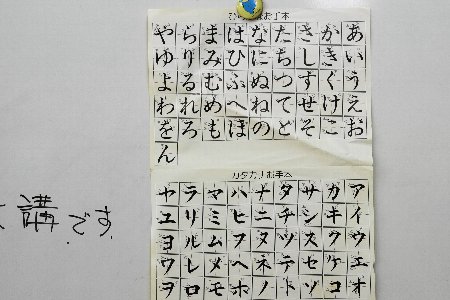 お手本
あいうえお
かきくけこ
さしすせそ
たちつてと
なにぬねの
はひふへほ
まみむめも
らりるれろ
やゆよわをん
カタカナお手本
アイウエオ
カキクケコ
サシスセソ
タチツテト
ナニヌネノ
ハヒフヘホ
マミムメモ
ラリルレロ
ヤユヨワヲ
講です